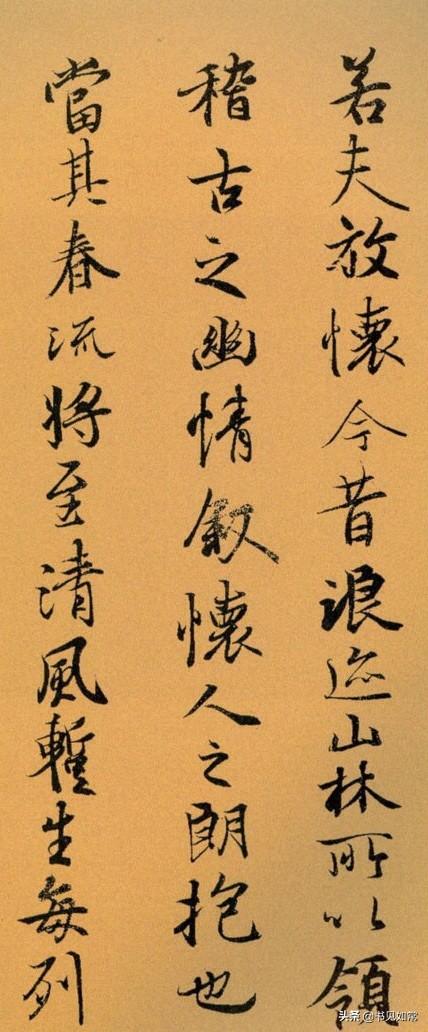 若夫放懷今昔浪迹山林所以領
稽古之幽情叙懷人之朗抱也
當其春流將至清風暫生每列
头条 @书见如常